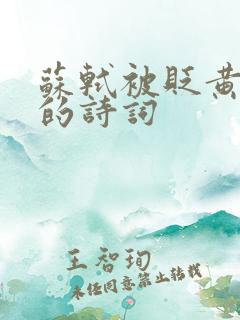 蘇軾被貶黃
的詩詞
王智珣
未經同意禁止轉載